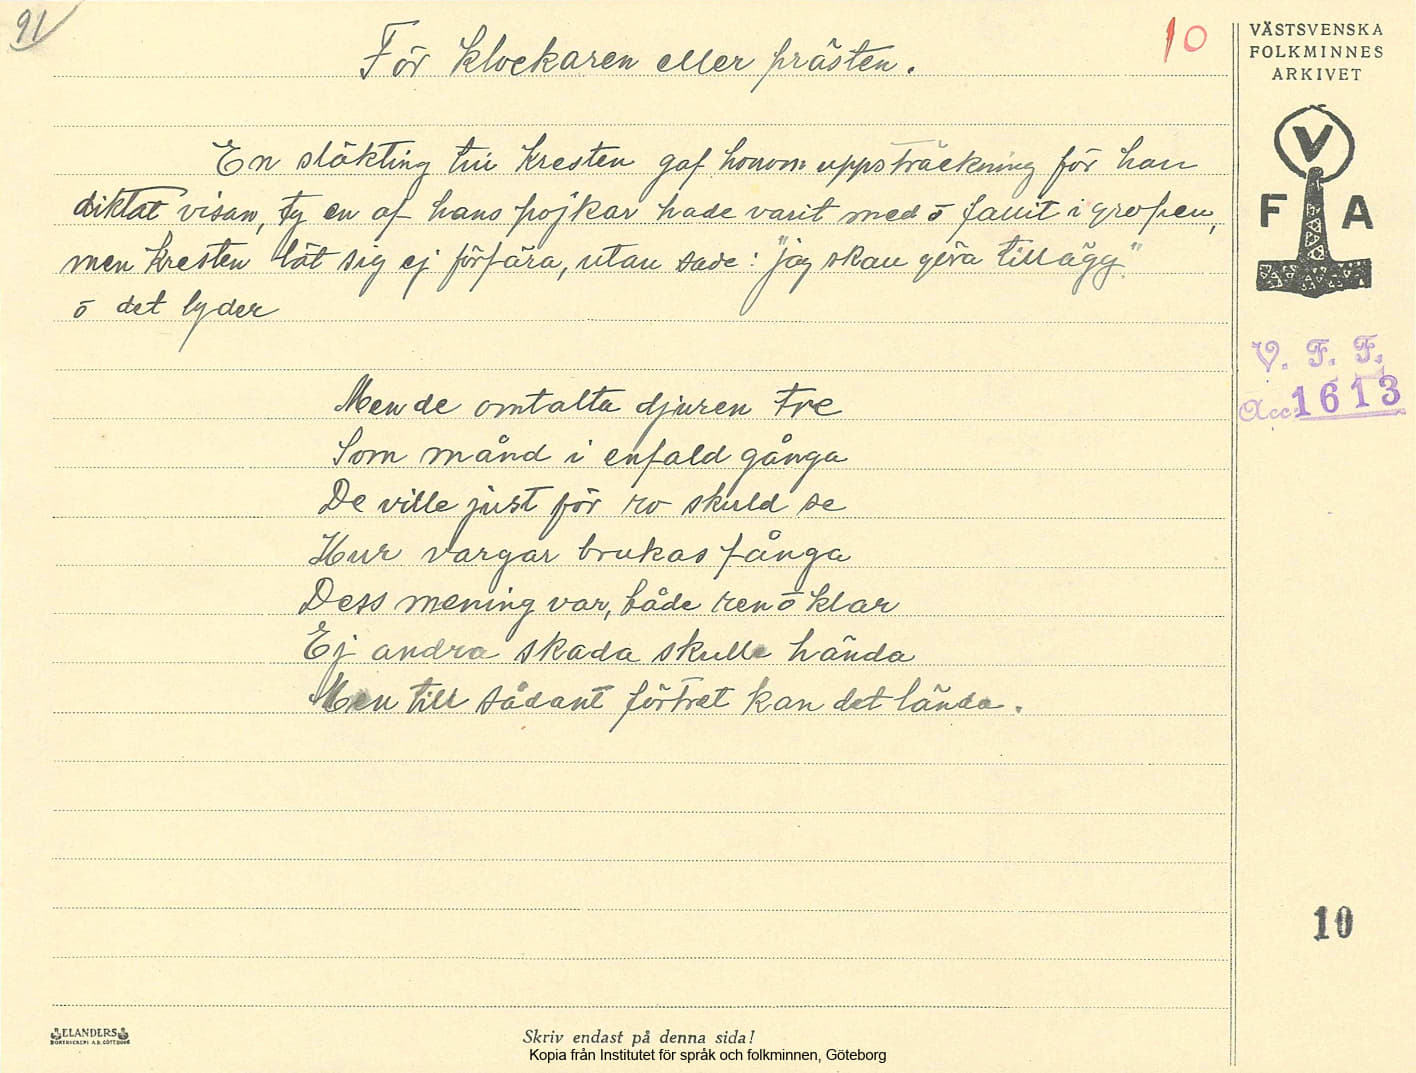 91
För klockaren eller prästen.
10
VÄSTSVENSKA
FOLKMINNES
ARKIVET
V
F A
En släkting till Kresten gaf honom uppsträckning för han
diktat visan, ty en af hans pojkar hade varit med ō fallit i gropen,
men Kresten lät sig ej förfära, utan sade: "jag skall göra tillägg"
ō det lyder
V. F. F.
Acc. 1613
Men de omtalta djuren tre
Som månd i enfald gånga
De ville just för ro skuld se
Hur vargar brukas fånga
Dess mening var, både ren ō klar
Ej andra skada skulle hända
Men till sådant förtret kan det lända.
10
ELANDERS
BOKTRYCKERI A.B. GÖTEBORG
Skriv endast på denna sida!
Kopia från Institutet för språk och folkminnen, Göteborg